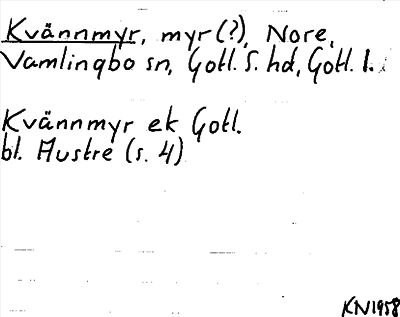 Kvännmyr, myr (?), Nore,
Vamlingbo sn, Gotl. S. hd, Gotl. l.
Kvännmyr ek Gotl.
bl. Austre (s. 4)
KN 1958